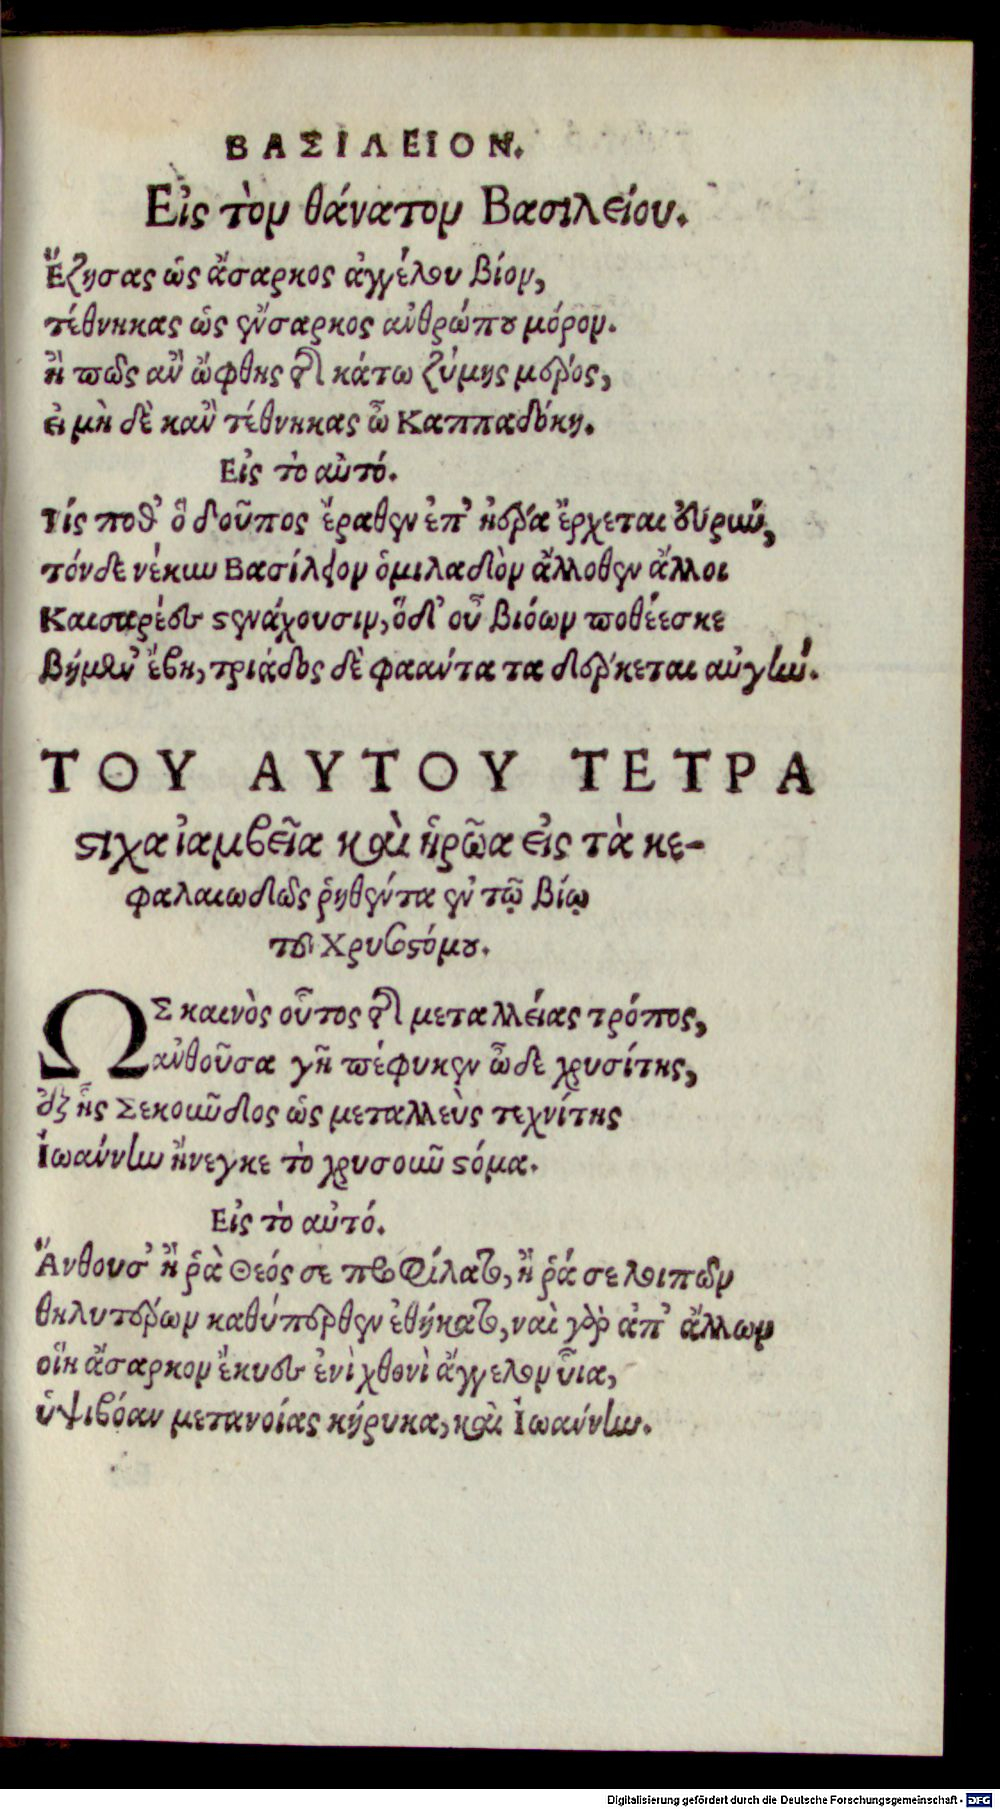 ΒΑΣΙΛΕΙΟΝ.
Εἰς τὸν θάνατον Βασιλείου.
Ἔζησας ὡς ἄσαρκος ἀγγέλου βίον,
τέθνηκας ὡς ἔνσαρκος ἀνθρώπου μόρον.
ἢ πῶς ἂν ὤφθης τῆς κάτω ζύμης μέρος,
εἰ μὴ δὲ κἂν τέθνηκας ὦ Καππαδόκη.
Εἰς τὸ αὐτό.
Τίς ποθ' ὁ δοῦπος ἔραθεν ἐπ' ἠέρα ἔρχεται εὐρὺν,
τόνδε νέκυν Βασίλειον ὁμιλαδὸν ἄλλοθεν ἄλλοι
Καισαρέες στενάχουσιν, ὅδ' οὗ βιόων ποθέεσκε
βῆμεν ἔβη, τριάδος δὲ φαάντατα δέρκεται αὐγὴν.
ΤΟΥ ΑΥΤΟΥ ΤΕΤΡΑ
στιχα ἰαμβεῖα καὶ ἡρῶα εἰς τὰ κε-
φαλαιωδῶς ῥηθέντα ἐν τῷ βίῳ
τοῦ Χρυσοστόμου.
ΩΣ καινὸς οὗτος τῆς μεταλλείας τρόπος,
ἀνθοῦσα γῆ πέφυκεν ὧδε χρυσίτης,
ἐξ ἧς Σεκοῦνδος ὡς μεταλλεὺς τεχνίτης
Ἰωάννην ἤνεγκε τὸ χρυσοῦν στόμα.
Εἰς τὸ αὐτό.
Ἄνθουσ' ἢ ῥὰ Θεός σε περὶ φίλατο, ἢ ῥά σε λοιπῶν
θηλυτέρων καθύπερθεν ἐθήκατο, ναὶ γὰρ ἀπ' ἄλλων
οἴη ἄσαρκον ἔκυες ἐνὶ χθονὶ ἄγγελον υἷα,
ὑψιβόαν μετανοίας κήρυκα, καὶ Ἰωάννην.
Digitalisierung gefördert durch die Deutsche Forschungsgemeinschaft - DFG